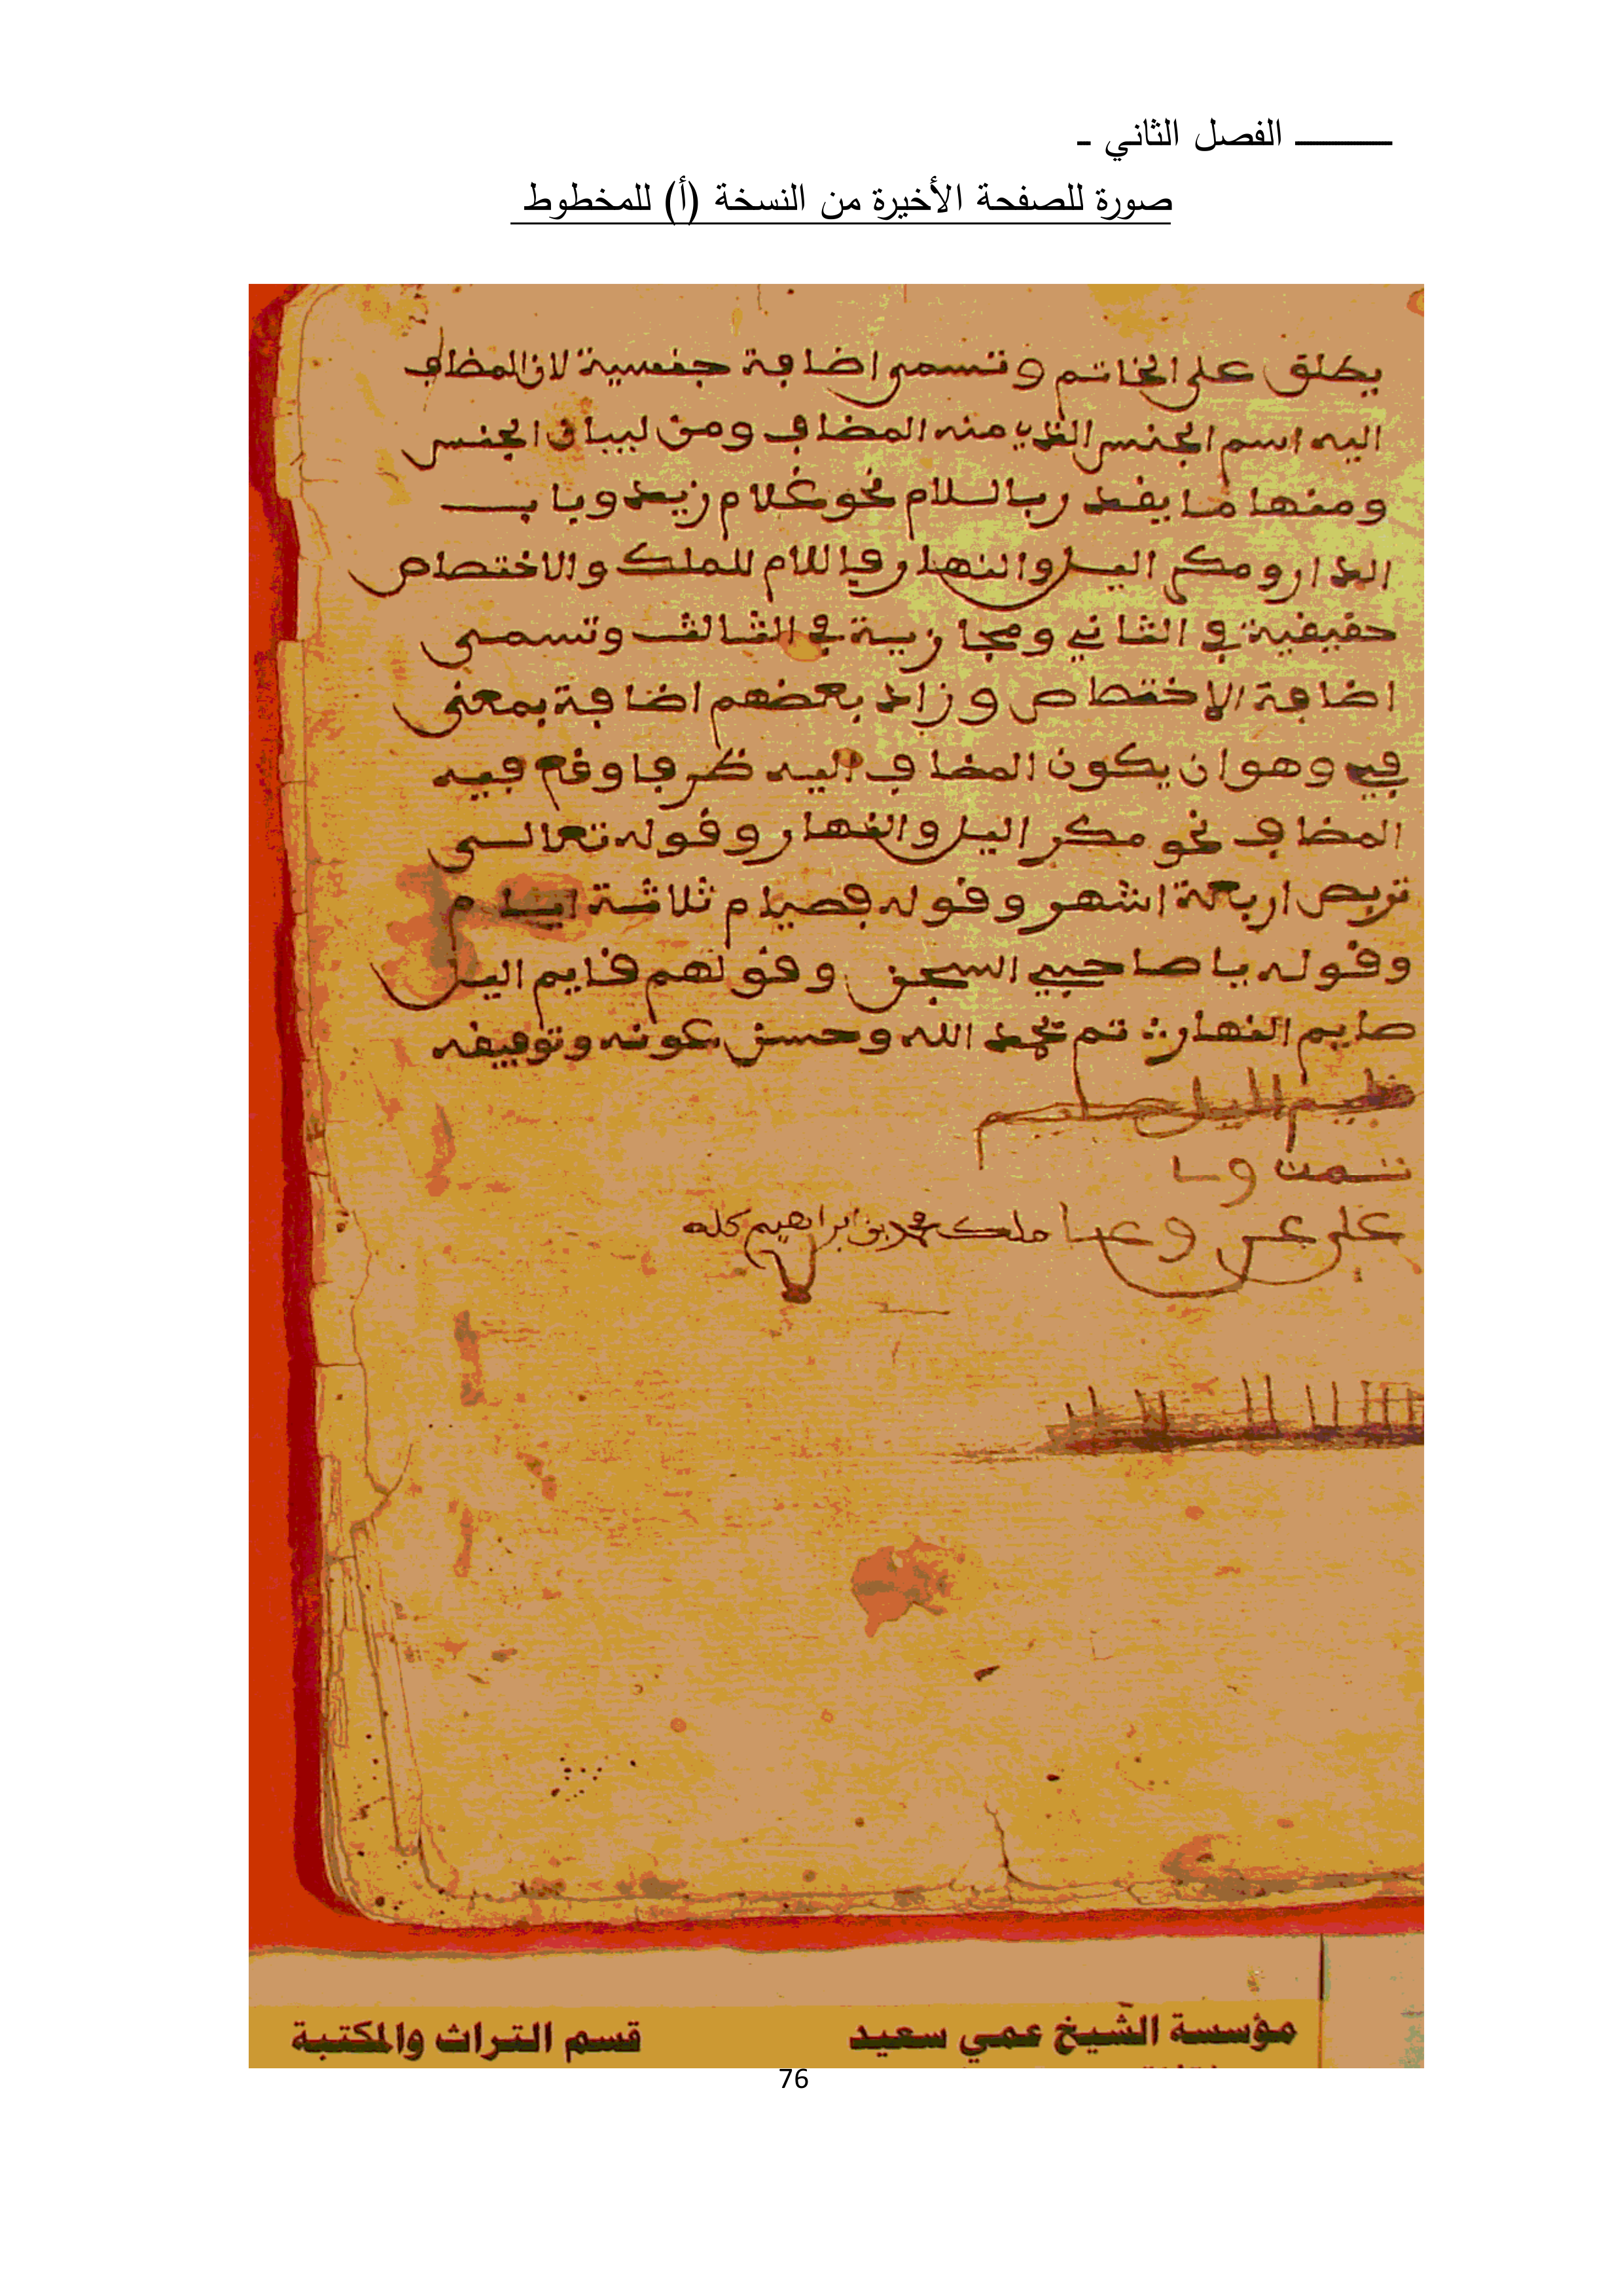 ـــــــــ الفصل الثاني ـ
صورة للصفحة الأخيرة من النسخة (أ) للمخطوط
يطلق على الخاتم وتسمى اضافة جنسية لان المضاف
اليه اسم الجنس الذي منه المضاف ومن لبيان الجنس
ومنها ما يقدر باللام نحو غلام زيد وباب
الدار ومكر اليل والنهار فاللام للملك والاختصاص
حقيقية في الثاني ومجازية في الثالث وتسمى
اضافة الاختصاص وزاد بعضهم اضافة بمعنى
في وهو ان يكون المضاف اليه ظرفا وقع فيه
المضاف نحو مكر اليل والنهار وقوله تعالى
تربص اربعة اشهر وقوله فصيام ثلاثة ايام
وقوله يا صاحبي السجن وقولهم قايم اليل
صايم النهار تم بحمد الله وحسن عونه وتوفيقه
تمت و
على و ملك محمد بن ابراهيم كله
مؤسسة الشيخ عمي سعيد
قسم التراث والمكتبة
76